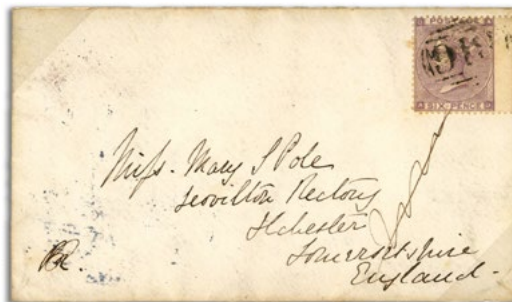 POSTAGE
SIX PENCE
Miss. Mary S Pole
Yeovilton Rectory
Ilchester
Somersetshire
England.